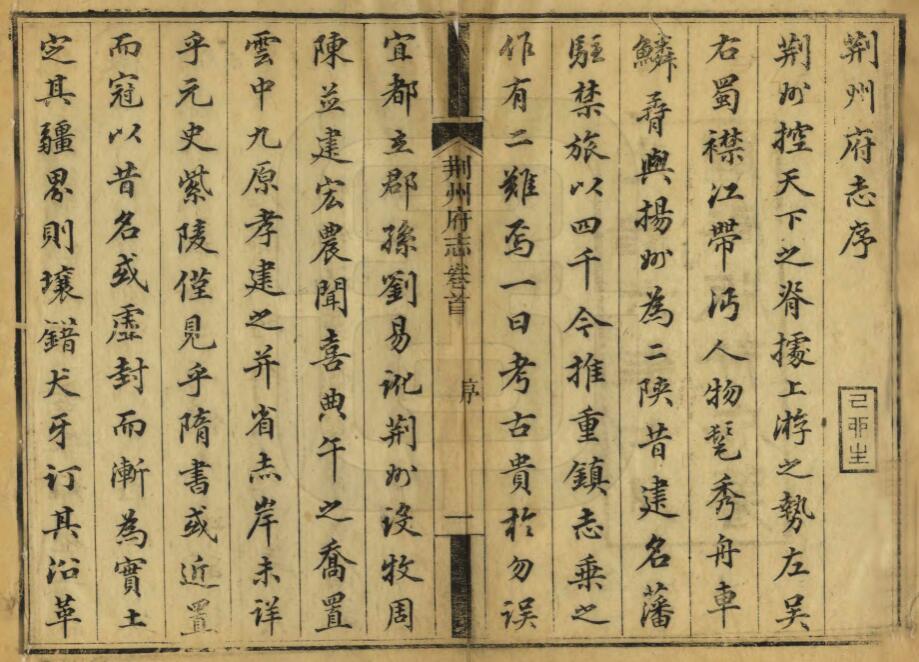 荆州府志序
己卯生
荆州控天下之脊據上游之勢左吴
右蜀襟江帶沔人物髦秀舟車
鱗脊與揚州為二陝昔建名藩
駐禁旅以四千今推重鎮志乗之
作有二難焉一曰考古貴於勿误
荆州府志卷首
序
一
宜都立郡孫劉易訛荆州设牧周
陳並建宏農聞喜典午之喬置
雲中九原孝建之并省赤岸未详
乎元史紫陵僅見乎隋書或近置
而冠以昔名或虚封而漸為實土
定其疆界則壌錯犬牙订其沿革